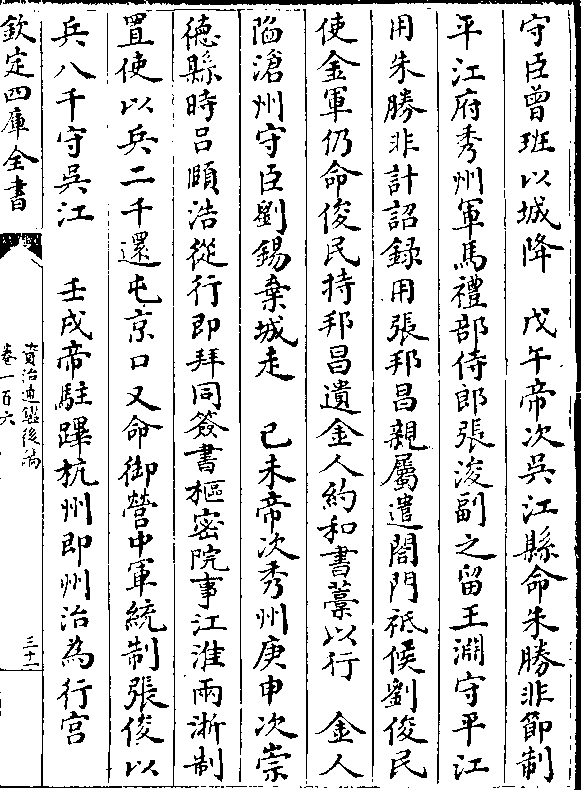 守臣曾班以城降　戊午帝次吳江縣命朱勝非節制
平江府秀州軍馬禮部侍郎張浚副之留王淵守平江
用朱勝非計詔録用張邦昌親屬遣閤門祗候劉俊民
使金軍仍命俊民持邦昌遺金人約和書藁以行　金人
陷滄州守臣劉錫棄城走　已未帝次秀州庚申次崇
徳縣時吕頤浩從行即拜同簽書樞密院事江淮兩浙制
置使以兵二千還屯京口又命御營中軍統制張俊以
兵八千守吳江　壬戌帝駐蹕杭州即州治為行宫
欽定四庫全書
資治通鑑後編
卷一百六
三十一